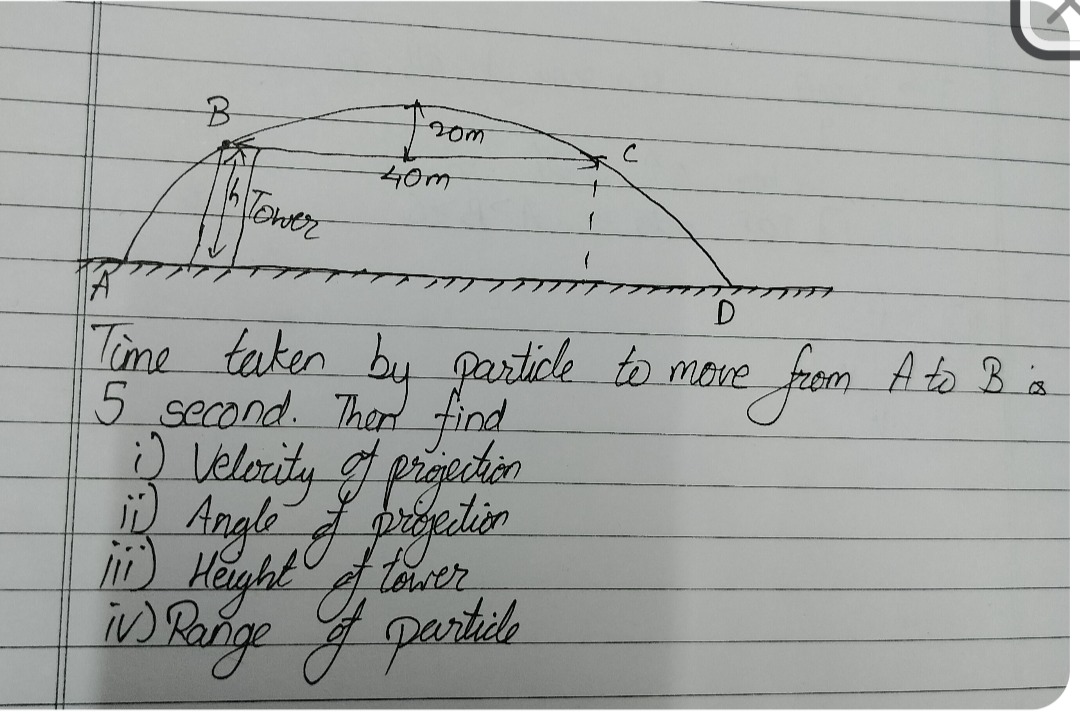 B
20m
C
40m
h
Tower
A
D
Time taken by particle to move from A to B is
5 second. Then find
i) Velocity of projection
ii) Angle of projection
iii) Height of tower
iv) Range of particle